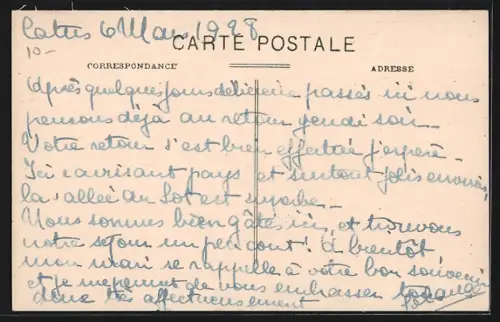 6 Mars 1928
10-
CARTE POSTALE
CORRESPONDANCE
ADRESSE
Après quelques jours passés ici nous
pensons déjà au retour jeudi soir –
Votre retour s'est bien effectué j'espère –
Ici ravissant pays et surtout jolis environs,
la vallée du Lot est superbe –
Nous sommes bien gâtés ici, et trouvons
notre séjour un peu court! A bientôt,
mon mari se rappelle à votre bon souvenir
et je me permet de vous embrasser tous
deux très affectueusement